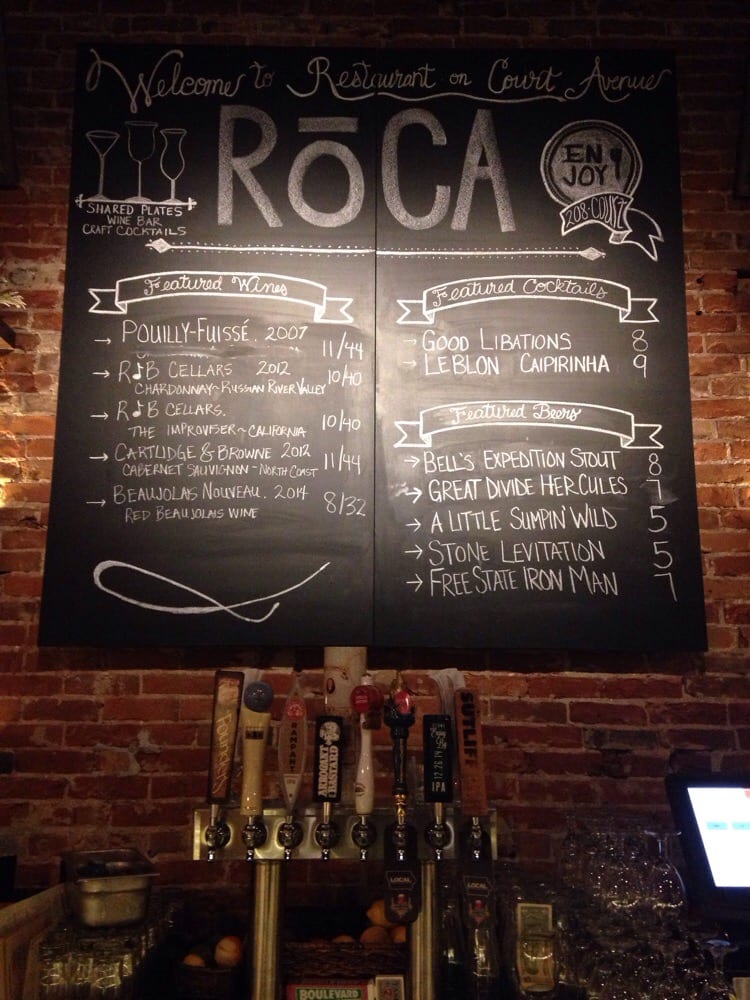 Welcome to Restaurant on Court Avenue
RŌCA
SHARED PLATES
WINE BAR
CRAFT COCKTAILS
ENJOY
208-COURT
Featured Wines
POUILLY-FUISSÉ. 2007 11/44
R♪B CELLARS 2012
CHARDONNAY~RUSSIAN RIVER VALLEY 10/40
R♪B CELLARS.
THE IMPROVISER~CALIFORNIA 10/40
CARTLIDGE & BROWNE 2012
CABERNET SAUVIGNON~NORTH COAST 11/44
BEAUJOLAIS NOUVEAU. 2014
RED BEAUJOLAIS WINE 8/32
Featured Cocktails
GOOD LIBATIONS 8
LEBLON CAIPIRINHA 9
Featured Beers
BELL'S EXPEDITION STOUT 8
GREAT DIVIDE HERCULES 7
A LITTLE SUMPIN' WILD 5
STONE LEVITATION 5
FREE STATE IRON MAN 7
Founders
RAMPANT
ARROGANT
BASTARD
Enjoy By
12.26.14
IPA
SUTLIFF
LOCAL
LOCAL
BOULEVARD